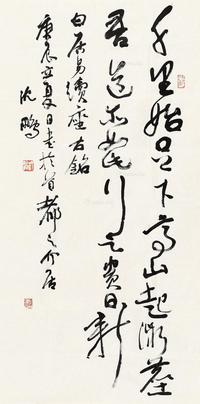 千里始足下高山起微尘
吾道亦如此行之贵日新
白居易续座右铭
庚辰立夏日书于首都之介居
沈鹏